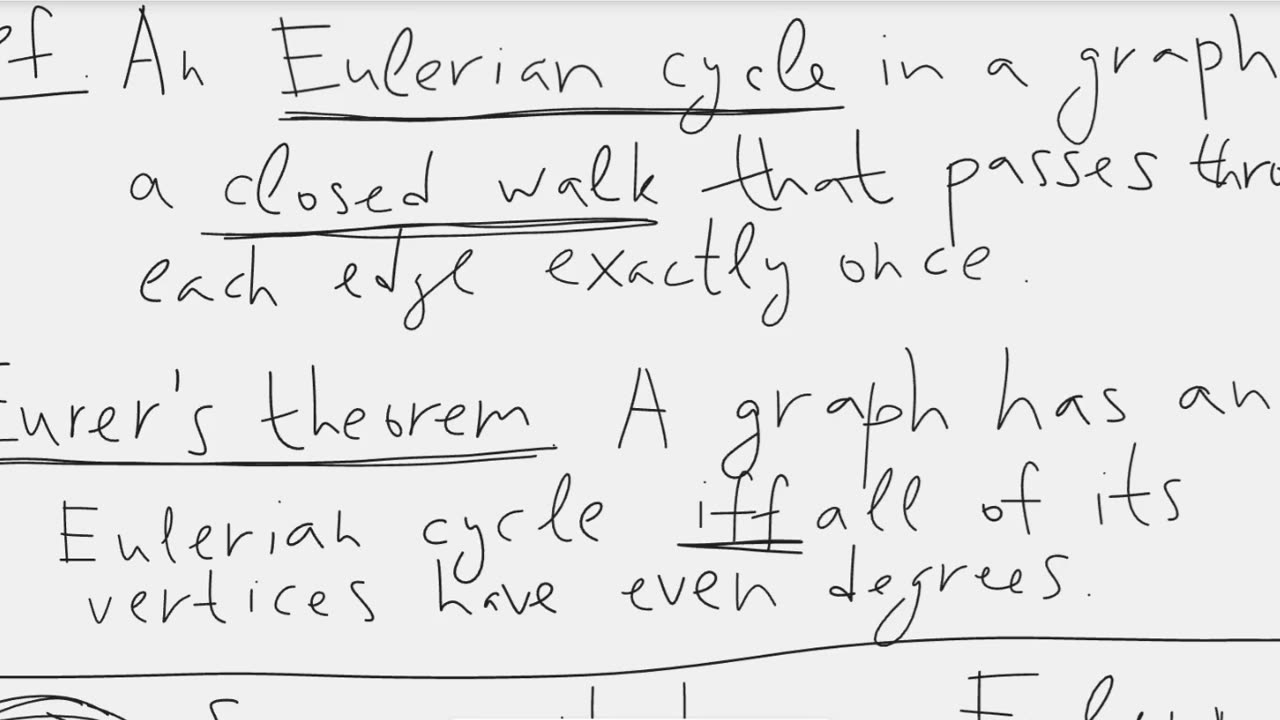 ef. An Eulerian cycle in a graph
a closed walk that passes thro
each edge exactly once.
Eurer's theorem. A graph has an
Eulerian cycle iff all of its
vertices have even degrees.